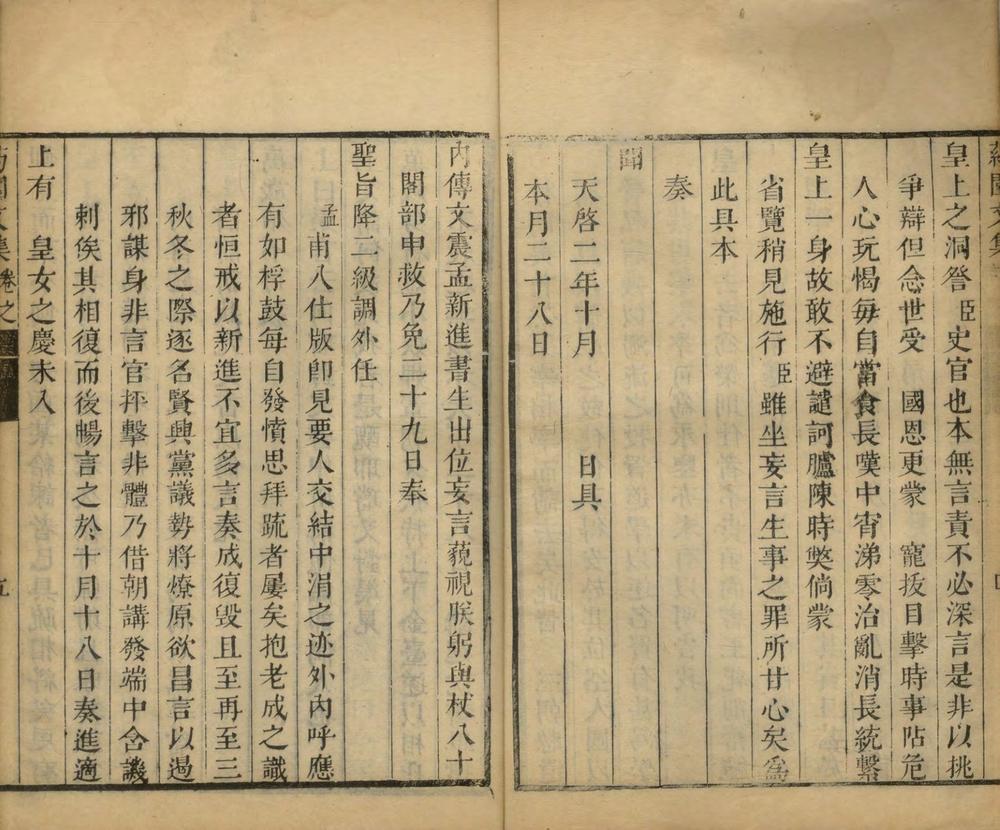 皇上之洞詧臣史官也本無言責不必深言是非以挑
爭辯但念世受　國恩更蒙　寵拔目擊時事阽危
人心玩愒每自當食長嘆中宵涕零治亂消長統繫
皇上一身故敢不避譴訶臚陳時獘倘蒙
省覽稍見施行臣雖坐妄言生事之罪所甘心矣為
此具本
奏
聞
天啓二年十月　　日具
本月二十八日
內傳文震孟新進書生出位妄言藐視朕躬與杖八十
閣部申救乃免二十九日奉
聖旨降二級調外任
孟甫入仕版即見要人交結中涓之迹外內呼應
有如桴鼓每自發憤思拜疏者屢矣抱老成之識
者恒戒以新進不宜多言奏成復毀且至再至三
秋冬之際逐名賢興黨議勢將燎原欲昌言以遏
邪謀身非言官抨擊非體乃借朝講發端中含譏
刺俟其相復而後暢言之於十月十八日奏進適
上有　皇女之慶未入
文集　卷之